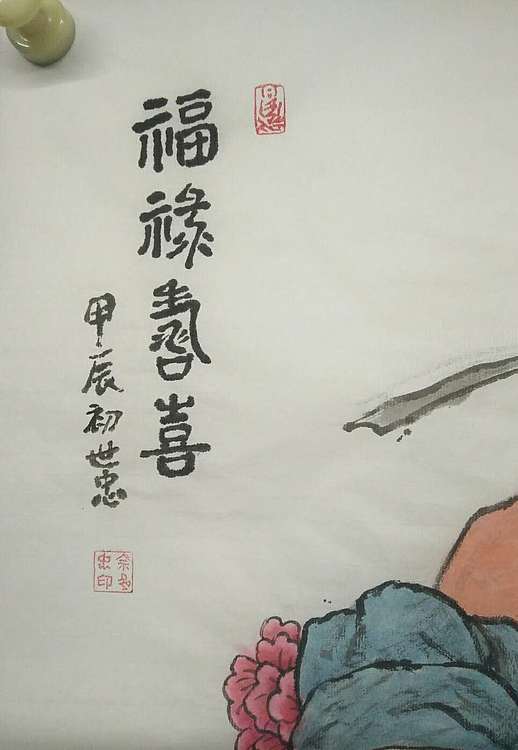 福祿壽喜
甲辰初世忠